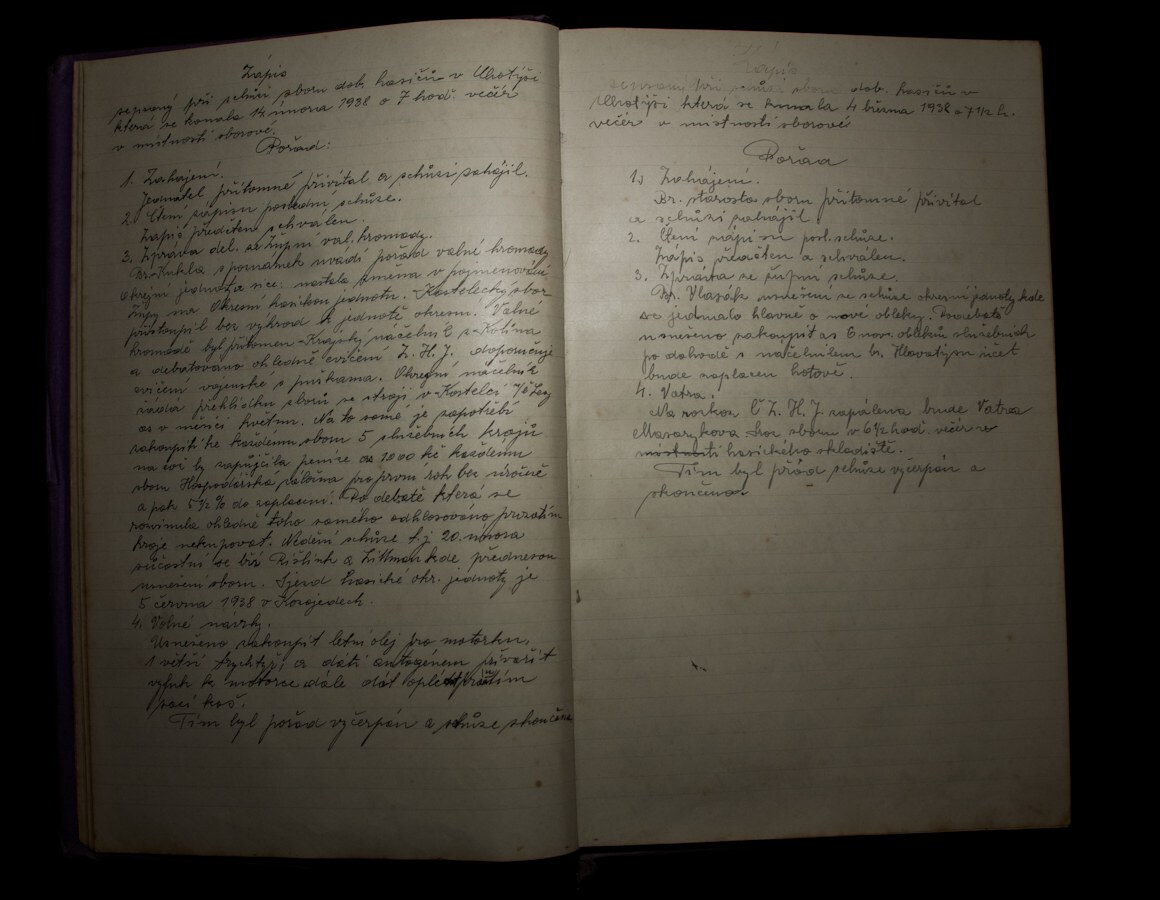 Zápis
sepsaný při schůzi sboru dob. hasičů v Chotýši
která se konala 12 února 1938 o 7 hod. večer
v místnosti sborové.
Pořad:
1. Zahájení.
Jednatel přítomné přivítal a schůzi zahájil.
2. Čtení zápisu poslední schůze.
Zápis předčten schválen.
3. Zpráva del. ze župní val. hromady.
Br. Kukla z poznámek uvádí pořad valné hromady
okresní jednota nce: nastala změna v pojmenování
župy na Okresní hasičskou jednotu. Kostelecký sbor
přistoupil bez výhrad k jednotě okresní. Valné
hromadě byl přítomen Krajský náčelník z Kolína
a debatováno ohledně cvičení Z. H. J. doporučuje
cvičení vojenské s puškama. Okresní náčelník
žádá přehlídku sborů ve stroji v Kostelci n/Č Lesy
as v měsíci květnu. Na to samé je zapotřebí
zakoupiti ke každému sboru 5 služebních krojů
na což by zapůjčila peníze as 1000 kč každému
sboru Hospodářská záložna pro první rok bez úročně
a pak 5½% do zaplacení. Po debatě která se
rozvinula ohledně toho samého odhlasováno prozatím
kroje nekupovat. Nedělní schůze t.j. 20. února
súčastní se bří Rišlink a Littman kde přednesou
usnešení sboru. Sjezd hasické okr. jednoty je
5 června 1938 v Kozojedech.
4. Volné návrhy.
Usnešeno zakoupit letní olej pro motorku,
1 větší trychtýř, a dáti autogenem přivařit
výfuk k motorce dále dát oplést prutím
sací koš.
Tím byl pořad vyčerpán a schůze skončena
Zápis
sepsaný při schůzi sboru dob. hasičů v
Chotýši která se konala 4 března 1938 o 7 ½ h.
večer v místnosti sborové
Pořad
1. Zahájení.
Br. starosta sboru přítomné přivítal
a schůzi zahájil
2. Čtení zápisu posl. schůze.
Zápis předčten a schválen.
3. Zpráva ze župní schůze.
Br. Vlasák usnešení ze schůze okresní jednoty kde
se jednalo hlavně o nové obleky. Podebatě
usnešeno zakoupit as 6 nov. obleků služebních
po dohodě s náčelníkem br. Hlavatým účet
bude zaplacen hotově.
4. Vatra.
Na rozkaz Č Z. H. J zapálena bude Vatra
Masarykova sraz sboru v 6½ hod. večer v
místnosti hasického skladiště.
Tím byl pořad schůze vyčerpán a
skončena.